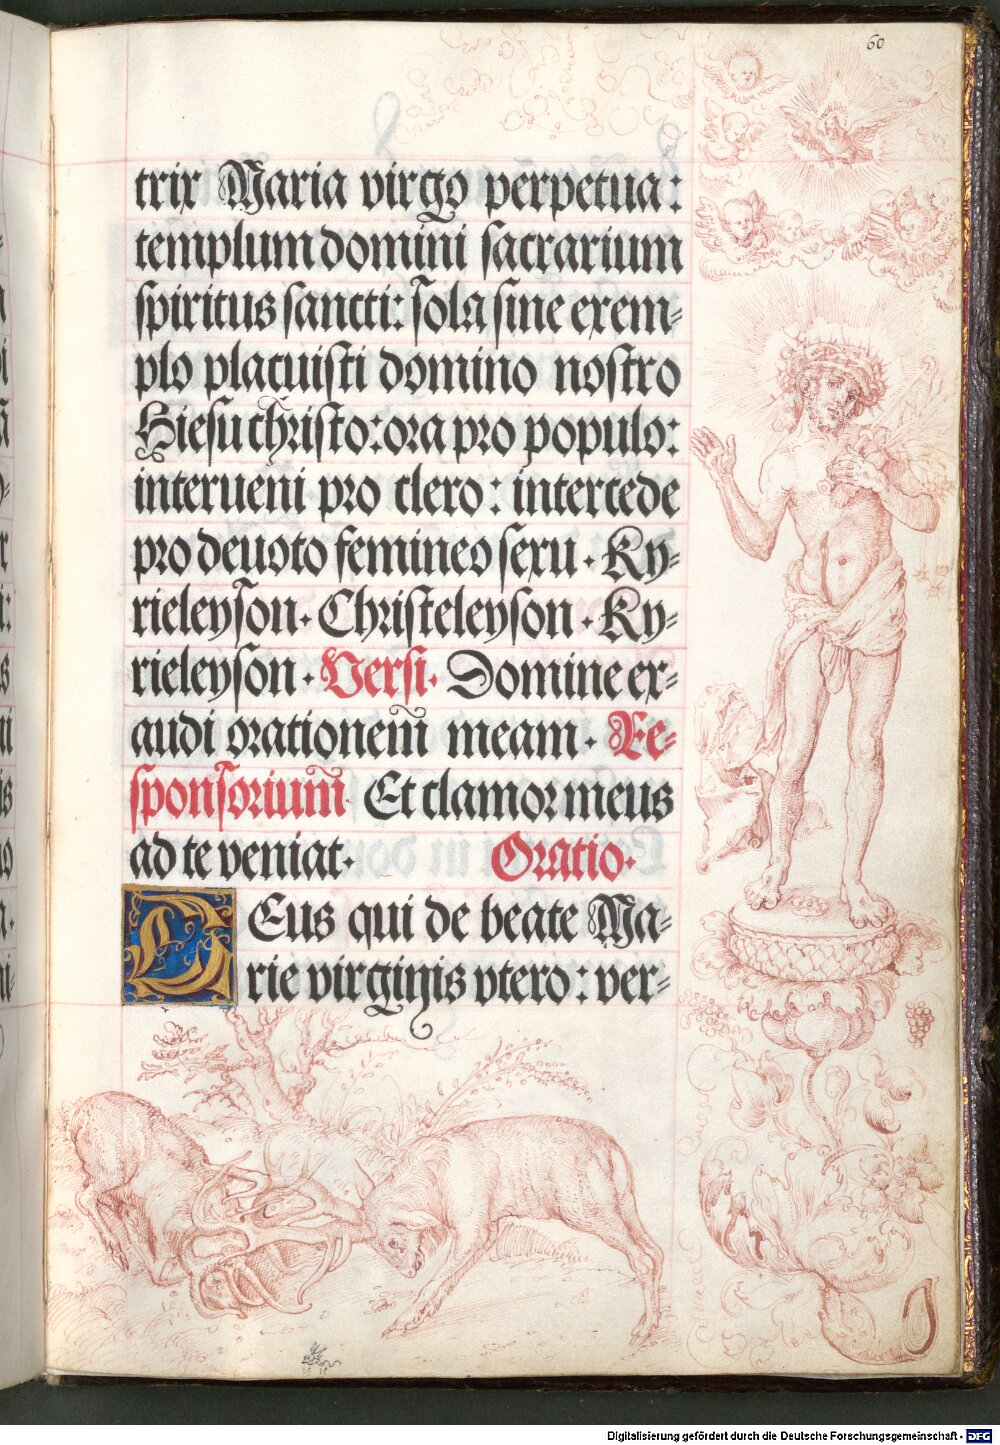 60
trix Maria virgo perpetua:
templum domini sacrarium
spiritus sancti: sola sine exem-
plo placuisti domino nostro
Hiesu christo: ora pro populo:
interueni pro clero: intercede
pro deuoto femineo sexu. Ky-
rieleyson. Christeleyson. Ky-
rieleyson. Versi. Domine ex-
audi orationem meam. Re-
sponsorium Et clamor meus
ad te veniat. Oratio.
DEus qui de beate Ma-
rie virginis vtero: ver-
Digitalisierung gefördert durch die Deutsche Forschungsgemeinschaft - DFG